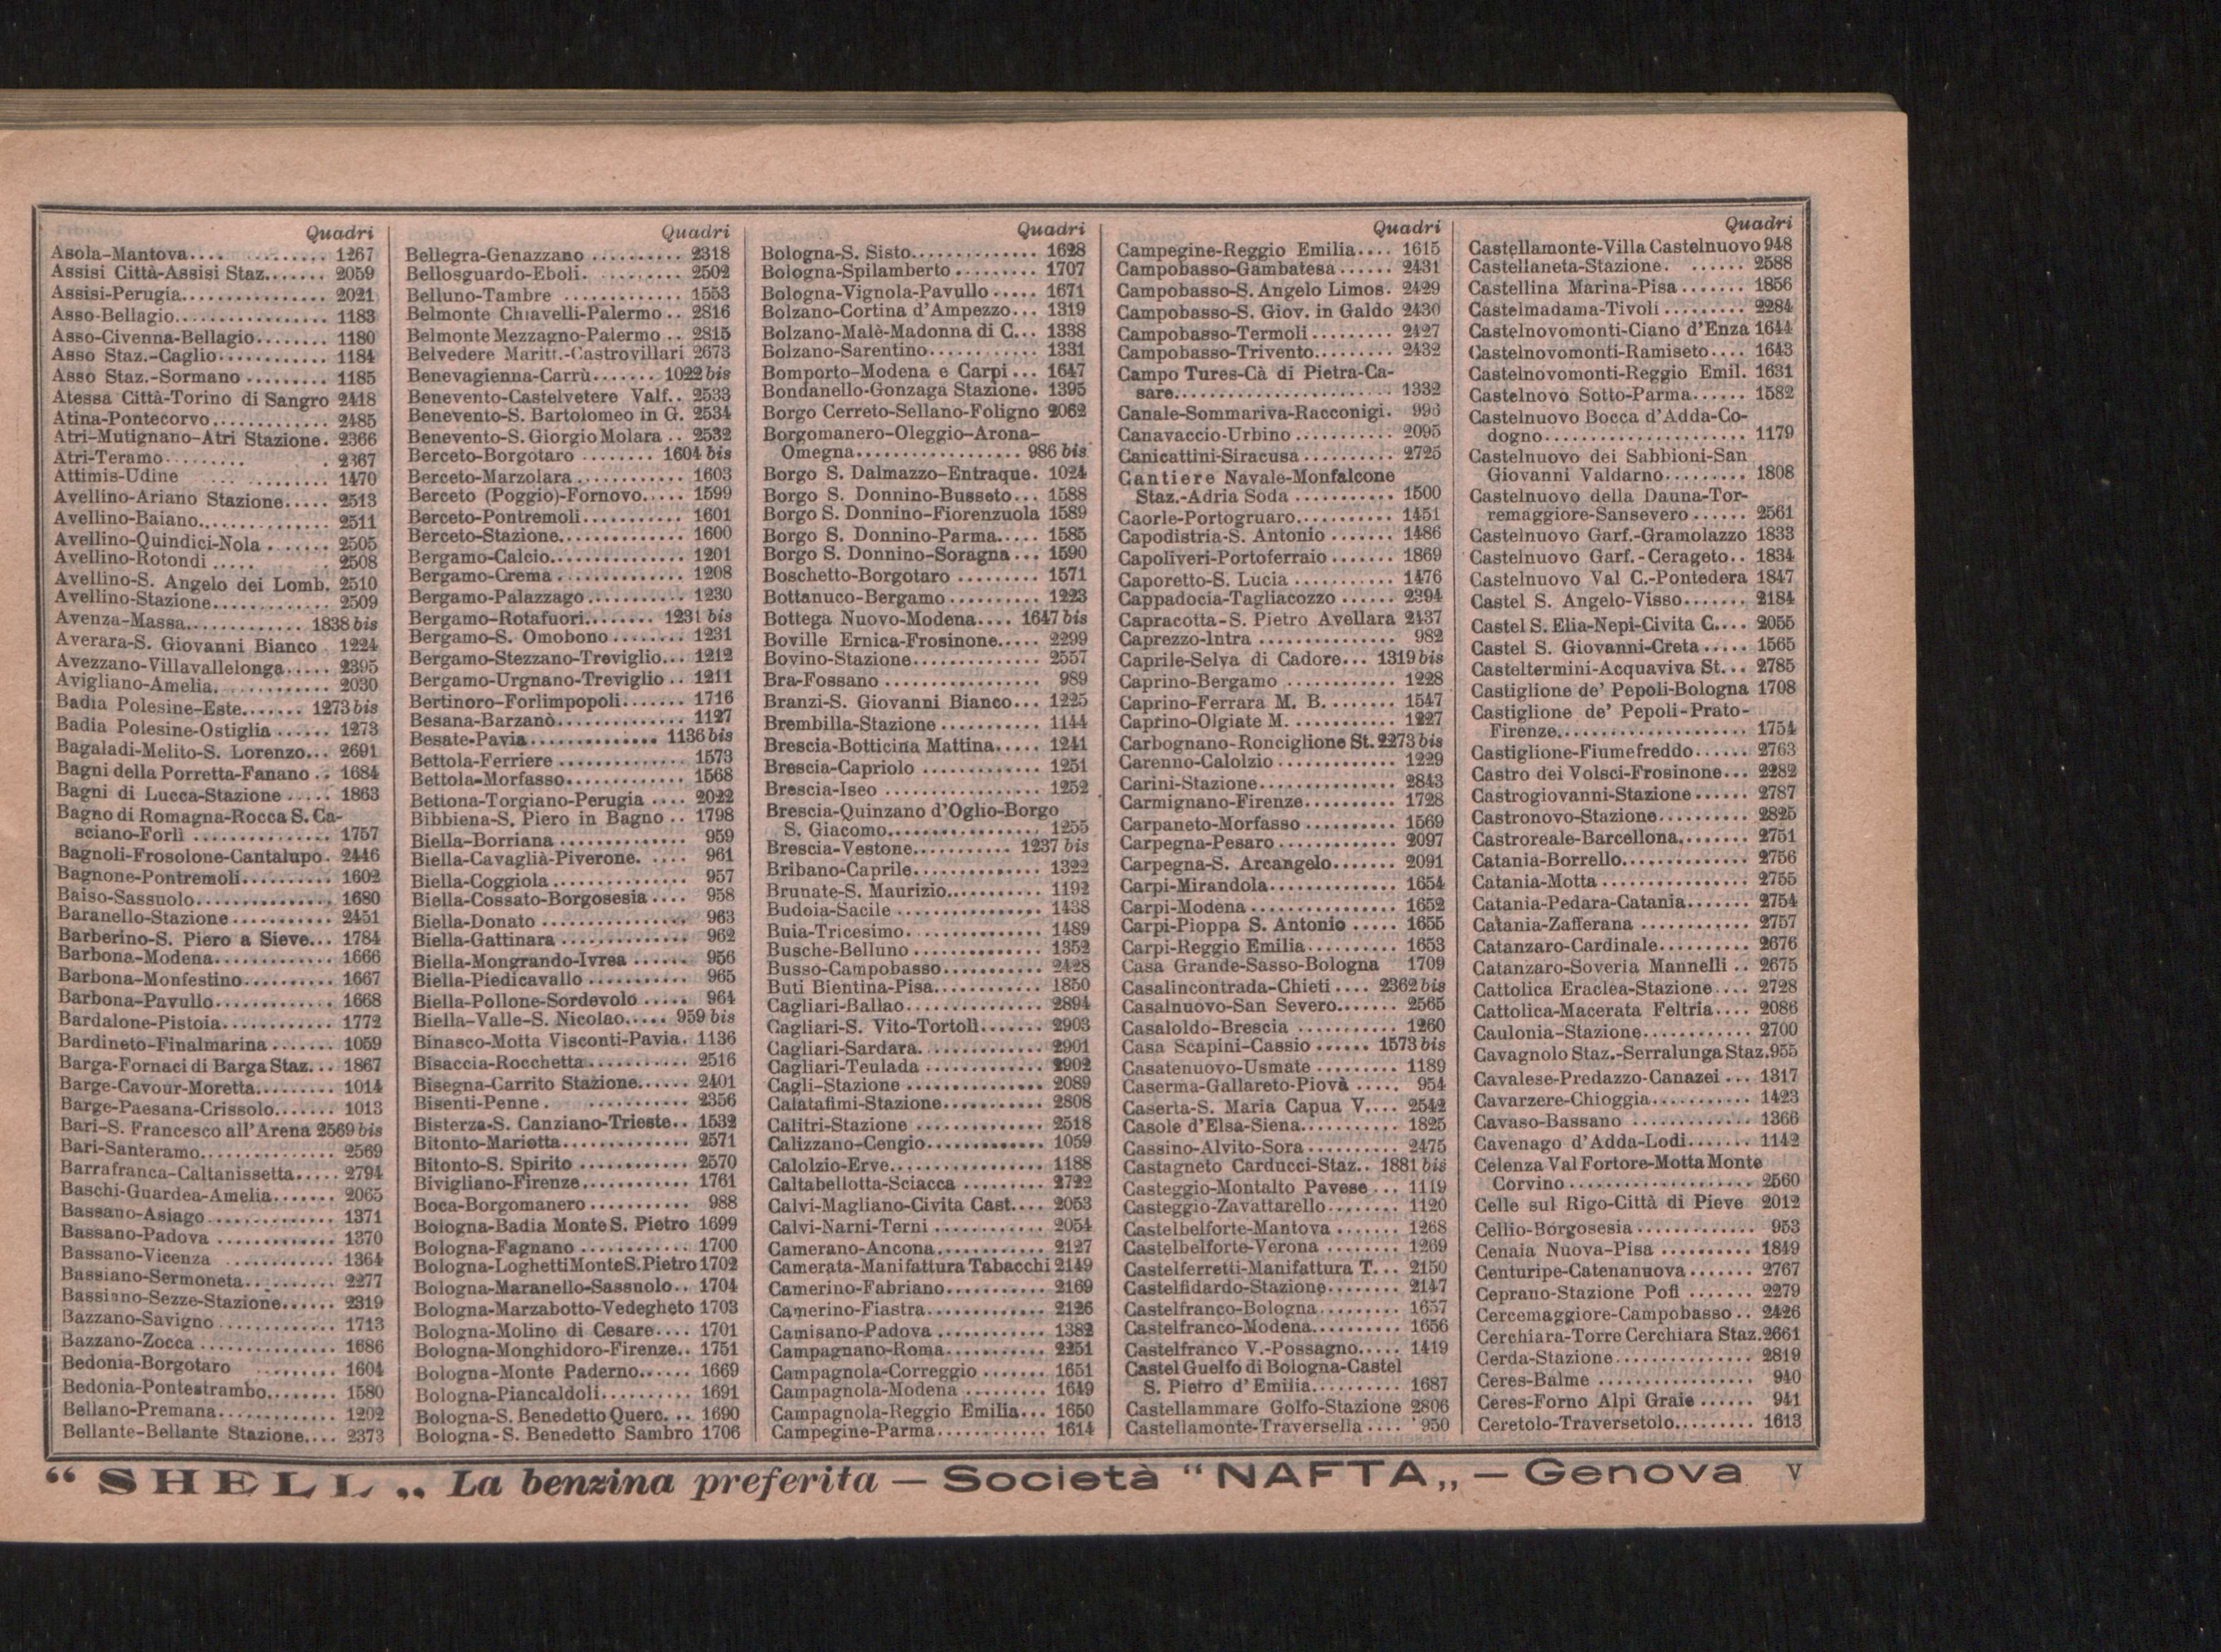 Quadri
Asola-Mantova.... ......... 1267
Assisi Città-Assisi Staz....... 2059
Assisi-Perugia................ 2021
Asso-Bellagio................. 1183
Asso-Civenna-Bellagio........ 1180
Asso Staz.-Caglio............ 1184
Asso Staz.-Sormano ......... 1185
Atessa Città-Torino di Sangro 2418
Atina-Pontecorvo............. 2485
Atri-Mutignano-Atri Stazione. 2366
Atri-Teramo......... . 2367
Attimis-Udine ... ........ 1470
Avellino-Ariano Stazione..... 2513
Avellino-Baiano.............. 2511
Avellino-Quindici-Nola ....... 2505
Avellino-Rotondi ..... . 2508
Avellino-S. Angelo dei Lomb. 2510
Avellino-Stazione............. 2509
Avenza-Massa............. 1838 bis
Averara-S. Giovanni Bianco . 1224
Avezzano-Villavallelonga..... 2395
Avigliano-Amelia. .......... 2030
Badia Polesine-Este....... 1273 bis
Badia Polesine-Ostiglia ...... 1273
Bagaladi-Melito-S. Lorenzo... 2691
Bagni della Porretta-Fanano .. 1684
Bagni di Lucca-Stazione ..... 1863
Bagno di Romagna-Rocca S. Ca-
sciano-Forlì ............... 1757
Bagnoli-Frosolone-Cantalupo. 2446
Bagnone-Pontremoli.......... 1602
Baiso-Sassuolo............... 1680
Baranello-Stazione ........... 2451
Barberino-S. Piero a Sieve... 1784
Barbona-Modena............. 1666
Barbona-Monfestino.......... 1667
Barbona-Pavullo............. 1668
Bardalone-Pistoia............ 1772
Bardineto-Finalmarina ....... 1059
Barga-Fornaci di Barga Staz... 1867
Barge-Cavour-Moretta........ 1014
Barge-Paesana-Crissolo....... 1013
Bari-S. Francesco all'Arena 2569 bis
Bari-Santeramo............... 2569
Barrafranca-Caltanissetta..... 2794
Baschi-Guardea-Amelia....... 2065
Bassano-Asiago.............. 1371
Bassano-Padova ............ 1370
Bassano-Vicenza ........... 1364
Bassiano-Sermoneta.. ....... 2277
Bassiano-Sezze-Stazione...... 2319
Bazzano-Savigno ............ 1713
Bazzano-Zocca .............. 1686
Bedonia-Borgotaro ........ 1604
Bedonia-Pontestrambo........ 1580
Bellano-Premana............. 1202
Bellante-Bellante Stazione.... 2373
Quadri
Bellegra-Genazzano .......... 2318
Bellosguardo-Eboli. ......... 2502
Belluno-Tambre ............. 1553
Belmonte Chiavelli-Palermo .. 2816
Belmonte Mezzagno-Palermo .. 2815
Belvedere Maritt.-Castrovillari 2673
Benevagienna-Carrù....... 1022 bis
Benevento-Castelvetere Valf.. 2533
Benevento-S. Bartolomeo in G. 2534
Benevento-S. Giorgio Molara .. 2532
Berceto-Borgotaro ........ 1604 bis
Berceto-Marzolara ............ 1603
Berceto (Poggio)-Fornovo..... 1599
Berceto-Pontremoli........... 1601
Berceto-Stazione............. 1600
Bergamo-Calcio............... 1201
Bergamo-Crema ............. 1208
Bergamo-Palazzago........... 1230
Bergamo-Rotafuori........ 1231 bis
Bergamo-S. Omobono ........ 1231
Bergamo-Stezzano-Treviglio... 1212
Bergamo-Urgnano-Treviglio .. 1211
Bertinoro-Forlimpopoli....... 1716
Besana-Barzanò............. 1127
Besate-Pavia.............. 1136 bis
Bettola-Ferriere ............. 1573
Bettola-Morfasso............ 1568
Bettona-Torgiano-Perugia .... 2022
Bibbiena-S. Piero in Bagno .. 1798
Biella-Borriana .............. 959
Biella-Cavaglià-Piverone. .... 961
Biella-Coggiola .............. 957
Biella-Cossato-Borgosesia .... 958
Biella-Donato ............... 963
Biella-Gattinara ............. 962
Biella-Mongrando-Ivrea ...... 956
Biella-Piedicavallo ........... 965
Biella-Pollone-Sordevolo ..... 964
Biella-Valle-S. Nicolao..... 959 bis
Binasco-Motta Visconti-Pavia. 1136
Bisaccia-Rocchetta........... 2516
Bisegna-Carrito Stazione...... 2401
Bisenti-Penne . ........... 2356
Bisterza-S. Canziano-Trieste.. 1532
Bitonto-Mariotta............. 2571
Bitonto-S. Spirito ........... 2570
Bivigliano-Firenze............ 1761
Boca-Borgomanero ........... 988
Bologna-Badia Monte S. Pietro 1699
Bologna-Fagnano ............ 1700
Bologna-Loghetti Monte S. Pietro 1702
Bologna-Maranello-Sassuolo.. 1704
Bologna-Marzabotto-Vedegheto 1703
Bologna-Molino di Cesare.... 1701
Bologna-Monghidoro-Firenze.. 1751
Bologna-Monte Paderno...... 1669
Bologna-Piancaldoli.......... 1691
Bologna-S. Benedetto Querc. .. 1690
Bologna-S. Benedetto Sambro 1706
Quadri
Bologna-S. Sisto.............. 1628
Bologna-Spilamberto ......... 1707
Bologna-Vignola-Pavullo ..... 1671
Bolzano-Cortina d'Ampezzo... 1319
Bolzano-Malè-Madonna di C... 1338
Bolzano-Sarentino............ 1331
Bomporto-Modena e Carpi ... 1647
Bondanello-Gonzaga Stazione. 1395
Borgo Cerreto-Sellano-Foligno 2062
Borgomanero-Oleggio-Arona-
Omegna................. 986 bis
Borgo S. Dalmazzo-Entraque. 1024
Borgo S. Donnino-Busseto... 1588
Borgo S. Donnino-Fiorenzuola 1589
Borgo S. Donnino-Parma..... 1585
Borgo S. Donnino-Soragna ... 1590
Boschetto-Borgotaro ......... 1571
Bottanuco-Bergamo .......... 1223
Bottega Nuovo-Modena.... 1647 bis
Boville Ernica-Frosinone..... 2299
Bovino-Stazione............. 2557
Bra-Fossano ................ 989
Branzi-S. Giovanni Bianco... 1225
Brembilla-Stazione ........... 1144
Brescia-Botticina Mattina..... 1241
Brescia-Capriolo ............ 1251
Brescia-Iseo ................ 1252
Brescia-Quinzano d'Oglio-Borgo
S. Giacomo................. 1255
Brescia-Vestone.......... 1237 bis
Bribano-Caprile............. 1322
Brunate-S. Maurizio.......... 1192
Budoia-Sacile ............... 1438
Buia-Tricesimo.............. 1489
Busche-Belluno ............. 1352
Busso-Campobasso........... 2428
Buti Bientina-Pisa........... 1850
Cagliari-Ballao.............. 2894
Cagliari-S. Vito-Tortolì....... 2903
Cagliari-Sardara. ........... 2901
Cagliari-Teulada ............ 2902
Cagli-Stazione .............. 2089
Calatafimi-Stazione........... 2808
Calitri-Stazione .............. 2518
Calizzano-Cengio............ 1059
Calolzio-Erve............... 1188
Caltabellotta-Sciacca ......... 2722
Calvi-Magliano-Civita Cast.... 2053
Calvi-Narni-Terni ............ 2054
Camerano-Ancona........... 2127
Camerata-Manifattura Tabacchi 2149
Camerino-Fabriano........... 2169
Camerino-Fiastra............ 2126
Camisano-Padova ........... 1382
Campagnano-Roma.......... 2251
Campagnola-Correggio ....... 1651
Campagnola-Modena ......... 1649
Campagnola-Reggio Emilia... 1650
Campegine-Parma............ 1614
Quadri
Campegine-Reggio Emilia.... 1615
Campobasso-Gambatesa ...... 2431
Campobasso-S. Angelo Limos. 2429
Campobasso-S. Giov. in Galdo 2430
Campobasso-Termoli ......... 2427
Campobasso-Trivento......... 2432
Campo Tures-Cà di Pietra-Ca-
sare....................... 1332
Canale-Sommariva-Racconigi. 996
Canavaccio-Urbino ........... 2095
Canicattini-Siracusa .......... 2725
Cantiere Navale-Monfalcone
Staz.-Adria Soda ........... 1500
Caorle-Portogruaro........... 1451
Capodistria-S. Antonio ....... 1486
Capoliveri-Portoferraio ....... 1869
Caporetto-S. Lucia ........... 1476
Cappadocia-Tagliacozzo ...... 2394
Capracotta-S. Pietro Avellara 2437
Caprezzo-Intra ............... 982
Caprile-Selva di Cadore... 1319 bis
Caprino-Bergamo ............ 1228
Caprino-Ferrara M. B. ....... 1547
Caprino-Olgiate M. ........... 1227
Carbognano-Ronciglione St. 2273 bis
Carenno-Calolzio ............ 1229
Carini-Stazione.............. 2843
Carmignano-Firenze.......... 1728
Carpaneto-Morfasso .......... 1569
Carpegna-Pesaro ............. 2097
Carpegna-S. Arcangelo....... 2091
Carpi-Mirandola.............. 1654
Carpi-Modena ................ 1652
Carpi-Pioppa S. Antonio ..... 1655
Carpi-Reggio Emilia.......... 1653
Casa Grande-Sasso-Bologna 1709
Casalincontrada-Chieti .... 2362 bis
Casalnuovo-San Severo....... 2565
Casaloldo-Brescia ........... 1260
Casa Scapini-Cassio ...... 1573 bis
Casatenuovo-Usmate ......... 1189
Caserma-Gallareto-Piovà ..... 954
Caserta-S. Maria Capua V.... 2542
Casole d'Elsa-Siena.......... 1825
Cassino-Alvito-Sora .......... 2475
Castagneto Carducci-Staz.. 1881 bis
Casteggio-Montalto Pavese ... 1119
Casteggio-Zavattarello........ 1120
Castelbelforte-Mantova ....... 1268
Castelbelforte-Verona ........ 1269
Castelferretti-Manifattura T... 2150
Castelfidardo-Stazione........ 2147
Castelfranco-Bologna......... 1657
Castelfranco-Modena.......... 1656
Castelfranco V.-Possagno..... 1419
Castel Guelfo di Bologna-Castel
S. Pietro d'Emilia.......... 1687
Castellammare Golfo-Stazione 2806
Castellamonte-Traversella .... 950
Quadri
Castellamonte-Villa Castelnuovo 948
Castellaneta-Stazione. ...... 2588
Castellina Marina-Pisa ....... 1856
Castelmadama-Tivoli ......... 2284
Castelnovomonti-Ciano d'Enza 1644
Castelnovomonti-Ramiseto.... 1643
Castelnovomonti-Reggio Emil. 1631
Castelnovo Sotto-Parma...... 1582
Castelnuovo Bocca d'Adda-Co-
dogno..................... 1179
Castelnuovo dei Sabbioni-San
Giovanni Valdarno......... 1808
Castelnuovo della Dauna-Tor-
remaggiore-Sansevero ...... 2561
Castelnuovo Garf.-Gramolazzo 1833
Castelnuovo Garf.-Cerageto.. 1834
Castelnuovo Val C.-Pontedera 1847
Castel S. Angelo-Visso....... 2184
Castel S. Elia-Nepi-Civita C.... 2055
Castel S. Giovanni-Creta ..... 1565
Casteltermini-Acquaviva St... 2785
Castiglione de' Pepoli-Bologna 1708
Castiglione de' Pepoli-Prato-
Firenze................... 1754
Castiglione-Fiumefreddo...... 2763
Castro dei Volsci-Frosinone... 2282
Castrogiovanni-Stazione ...... 2787
Castronovo-Stazione.......... 2825
Castroreale-Barcellona........ 2751
Catania-Borrello.............. 2756
Catania-Motta ................ 2755
Catania-Pedara-Catania....... 2754
Catania-Zafferana ............ 2757
Catanzaro-Cardinale.......... 2676
Catanzaro-Soveria Mannelli .. 2675
Cattolica Eraclea-Stazione.... 2728
Cattolica-Macerata Feltria.... 2086
Caulonia-Stazione............ 2700
Cavagnolo Staz.-Serralunga Staz. 955
Cavalese-Predazzo-Canazei ... 1317
Cavarzere-Chioggia........... 1423
Cavaso-Bassano ............. 1366
Cavenago d'Adda-Lodi....... 1142
Celenza Val Fortore-Motta Monte
Corvino................... 2560
Celle sul Rigo-Città di Pieve 2012
Cellio-Borgosesia ............ 953
Cenaia Nuova-Pisa .......... 1849
Centuripe-Catenanuova ....... 2767
Ceprano-Stazione Pofi ....... 2279
Cercemaggiore-Campobasso .. 2426
Cerchiara-Torre Cerchiara Staz. 2661
Cerda-Stazione.............. 2819
Ceres-Balme ................ 940
Ceres-Forno Alpi Graie ...... 941
Ceretolo-Traversetolo......... 1613
“ SHELL „ La benzina preferita — Società “NAFTA„ — Genova V